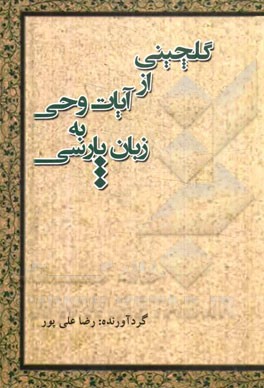 گلچینی
از
آیات وحی
به
زبان پارسی
گردآورنده: رضا علی پور